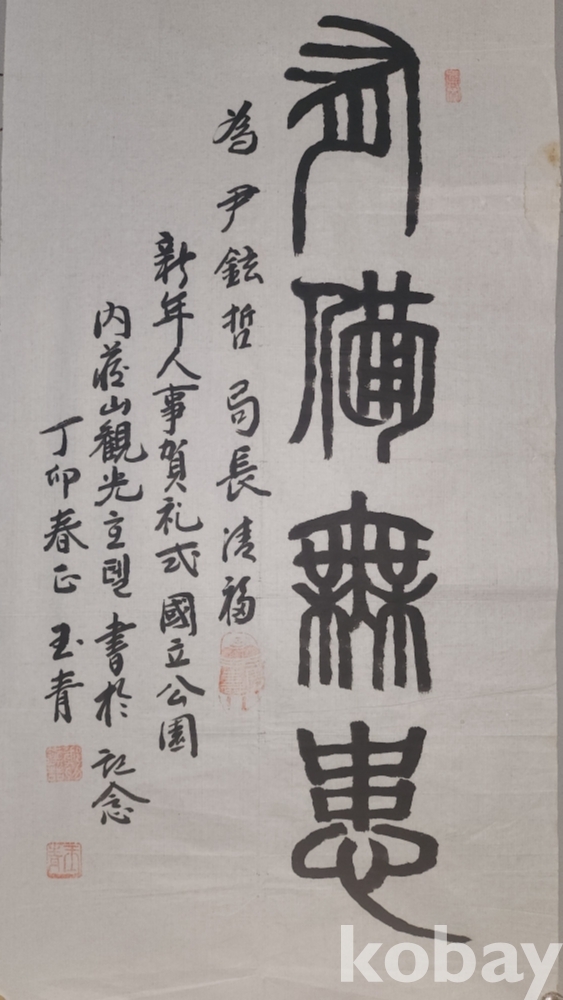 有備無患
為尹鉉哲局長清福
新年人事賀礼式國立公園
内蔵山観光호텔書於記念
丁卯春正玉青
kobay